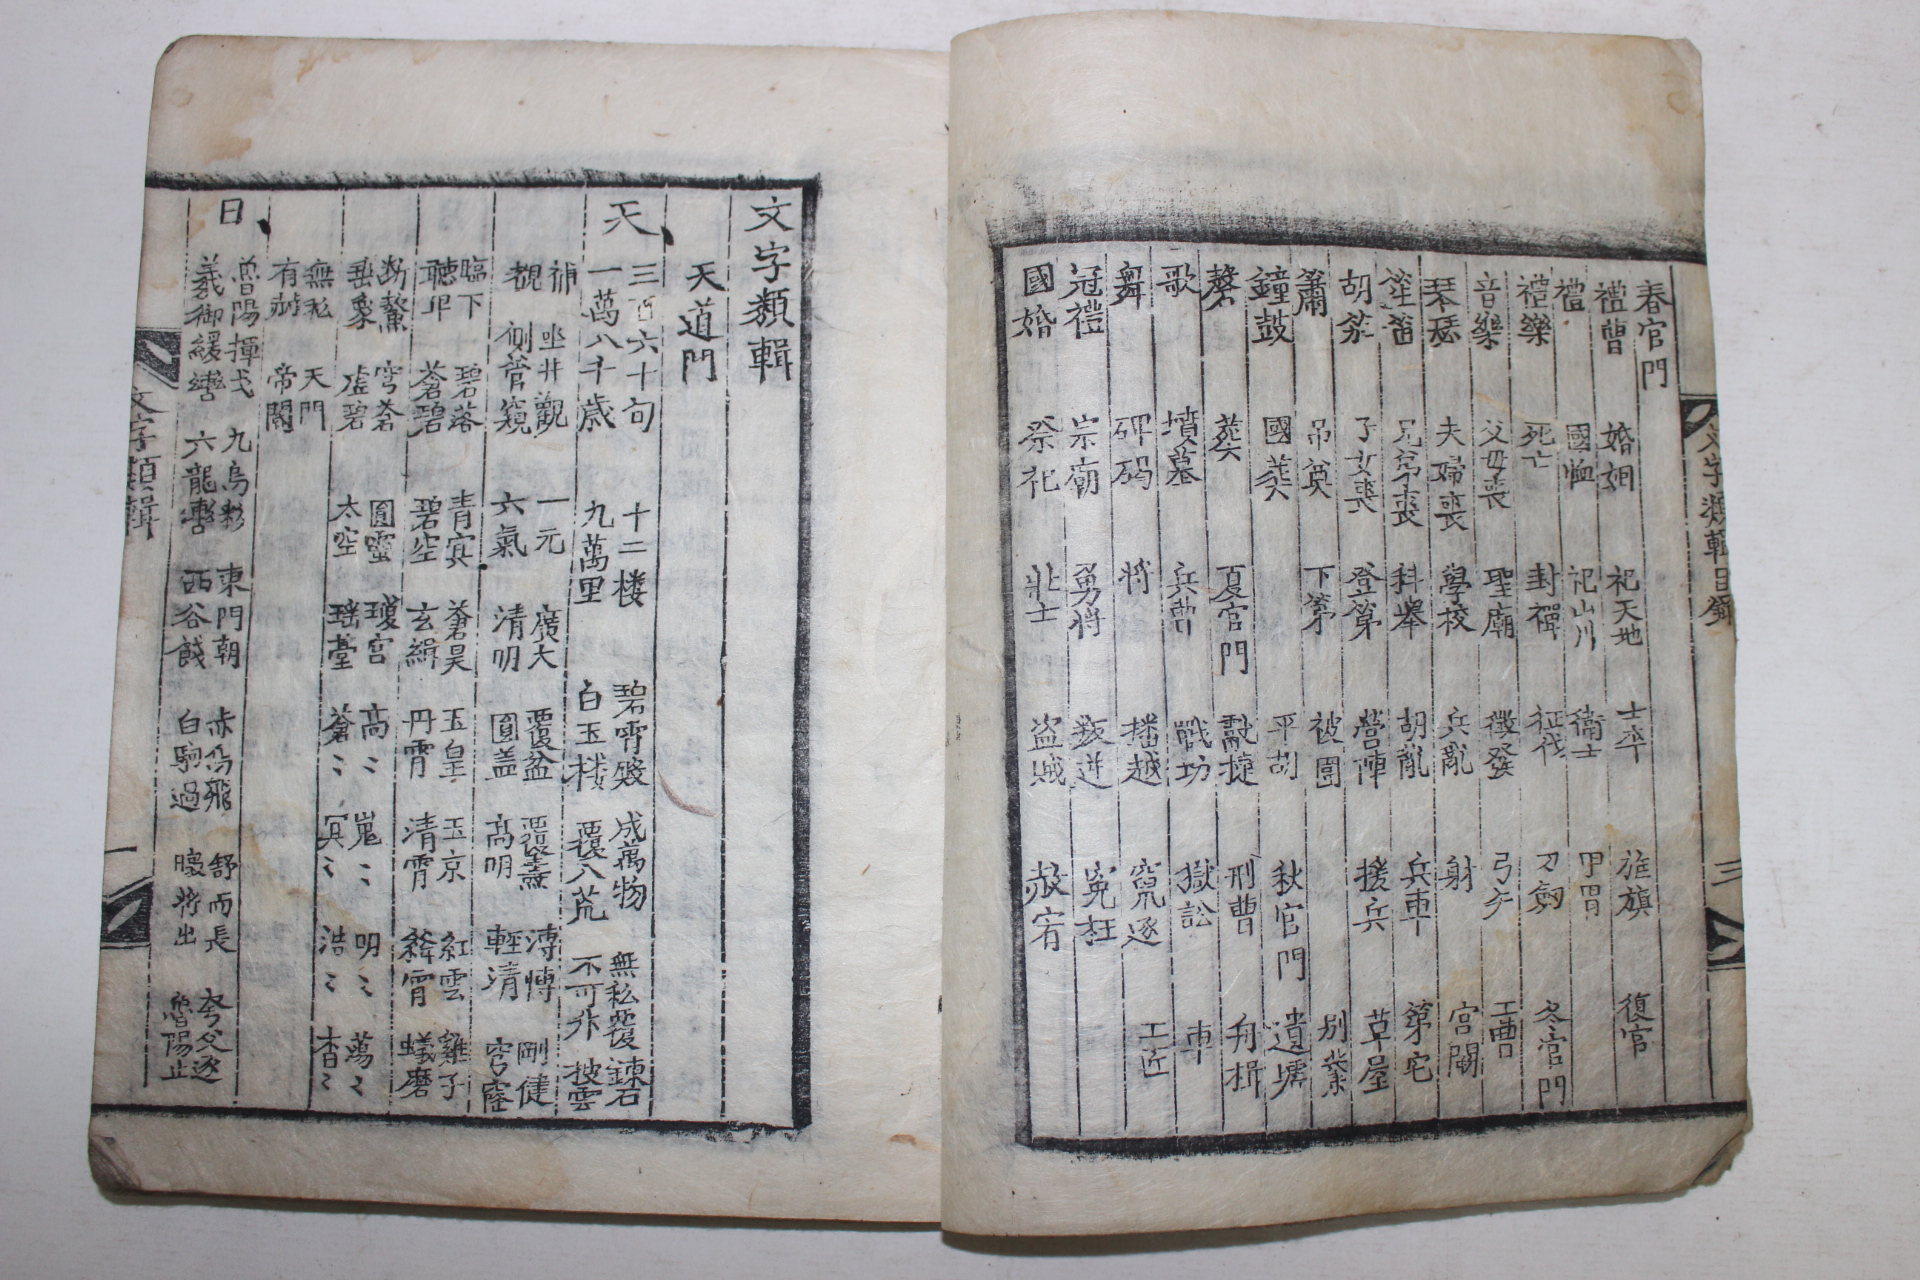 春官門
禮曹 婚姻 祀天地 士卒 旌旗 復官
禮 國恤 祀山川 衛士 甲胄
禮樂 死亡 封禪 征伐 刀劍 冬官門
音樂 父母喪 聖廟 徵發 弓矢 工曹
琴瑟 夫婦喪 學校 兵亂 射 宮闕
笙笛 兄弟喪 科擧 胡亂 兵車 第宅
胡笳 子女喪 登第 營陣 援兵 草屋
簫 吊奠 下第 被圍 別業
鐘鼓 國葬 平胡 秋官門 遺墟
磬 葬 夏官門 獻捷 刑曹 舟楫
歌 墳墓 兵曹 戰功 獄訟 車
舞 碑碣 將 播越 竄逐 工匠
冠禮 宗廟 勇將 叛逆 冤枉
國婚 祭祀 壯士 盜賊 赦宥
文字類輯目錄 三
文字類輯
天道門
天
三百六十旬 十二楼 碧霄殿 成萬物 無私覆 鍊石
一萬八千歲 九萬里 白玉楼 覆八荒 不可升 披雲
補 坐井觀 一元 廣大 覆盆 覆燾 溥博 剛健
覩 側管窺 六氣 清明 圓盖 高明 輕清 穹窿
臨下 碧落 青冥 蒼昊 玉皇 玉京 紅雲 雞子
聽卑 蒼碧 碧空 玄緯 丹霄 清霄 絳霄 蟻磨
穹蒼 圓靈 瓊宮 高〻 嵬〻 明〻 蕩〻
垂象 虛碧 太空 瑤臺 蒼〻 冥〻 浩〻 杳〻
無私 天門
有 帝閽
日
魯陽揮戈 九烏 東門朝 赤烏飛 舒而長 夸父逐
羲御緩轡 六龍轡 西谷餞 白駒過 暾將出 魯陽止
文字類輯 一